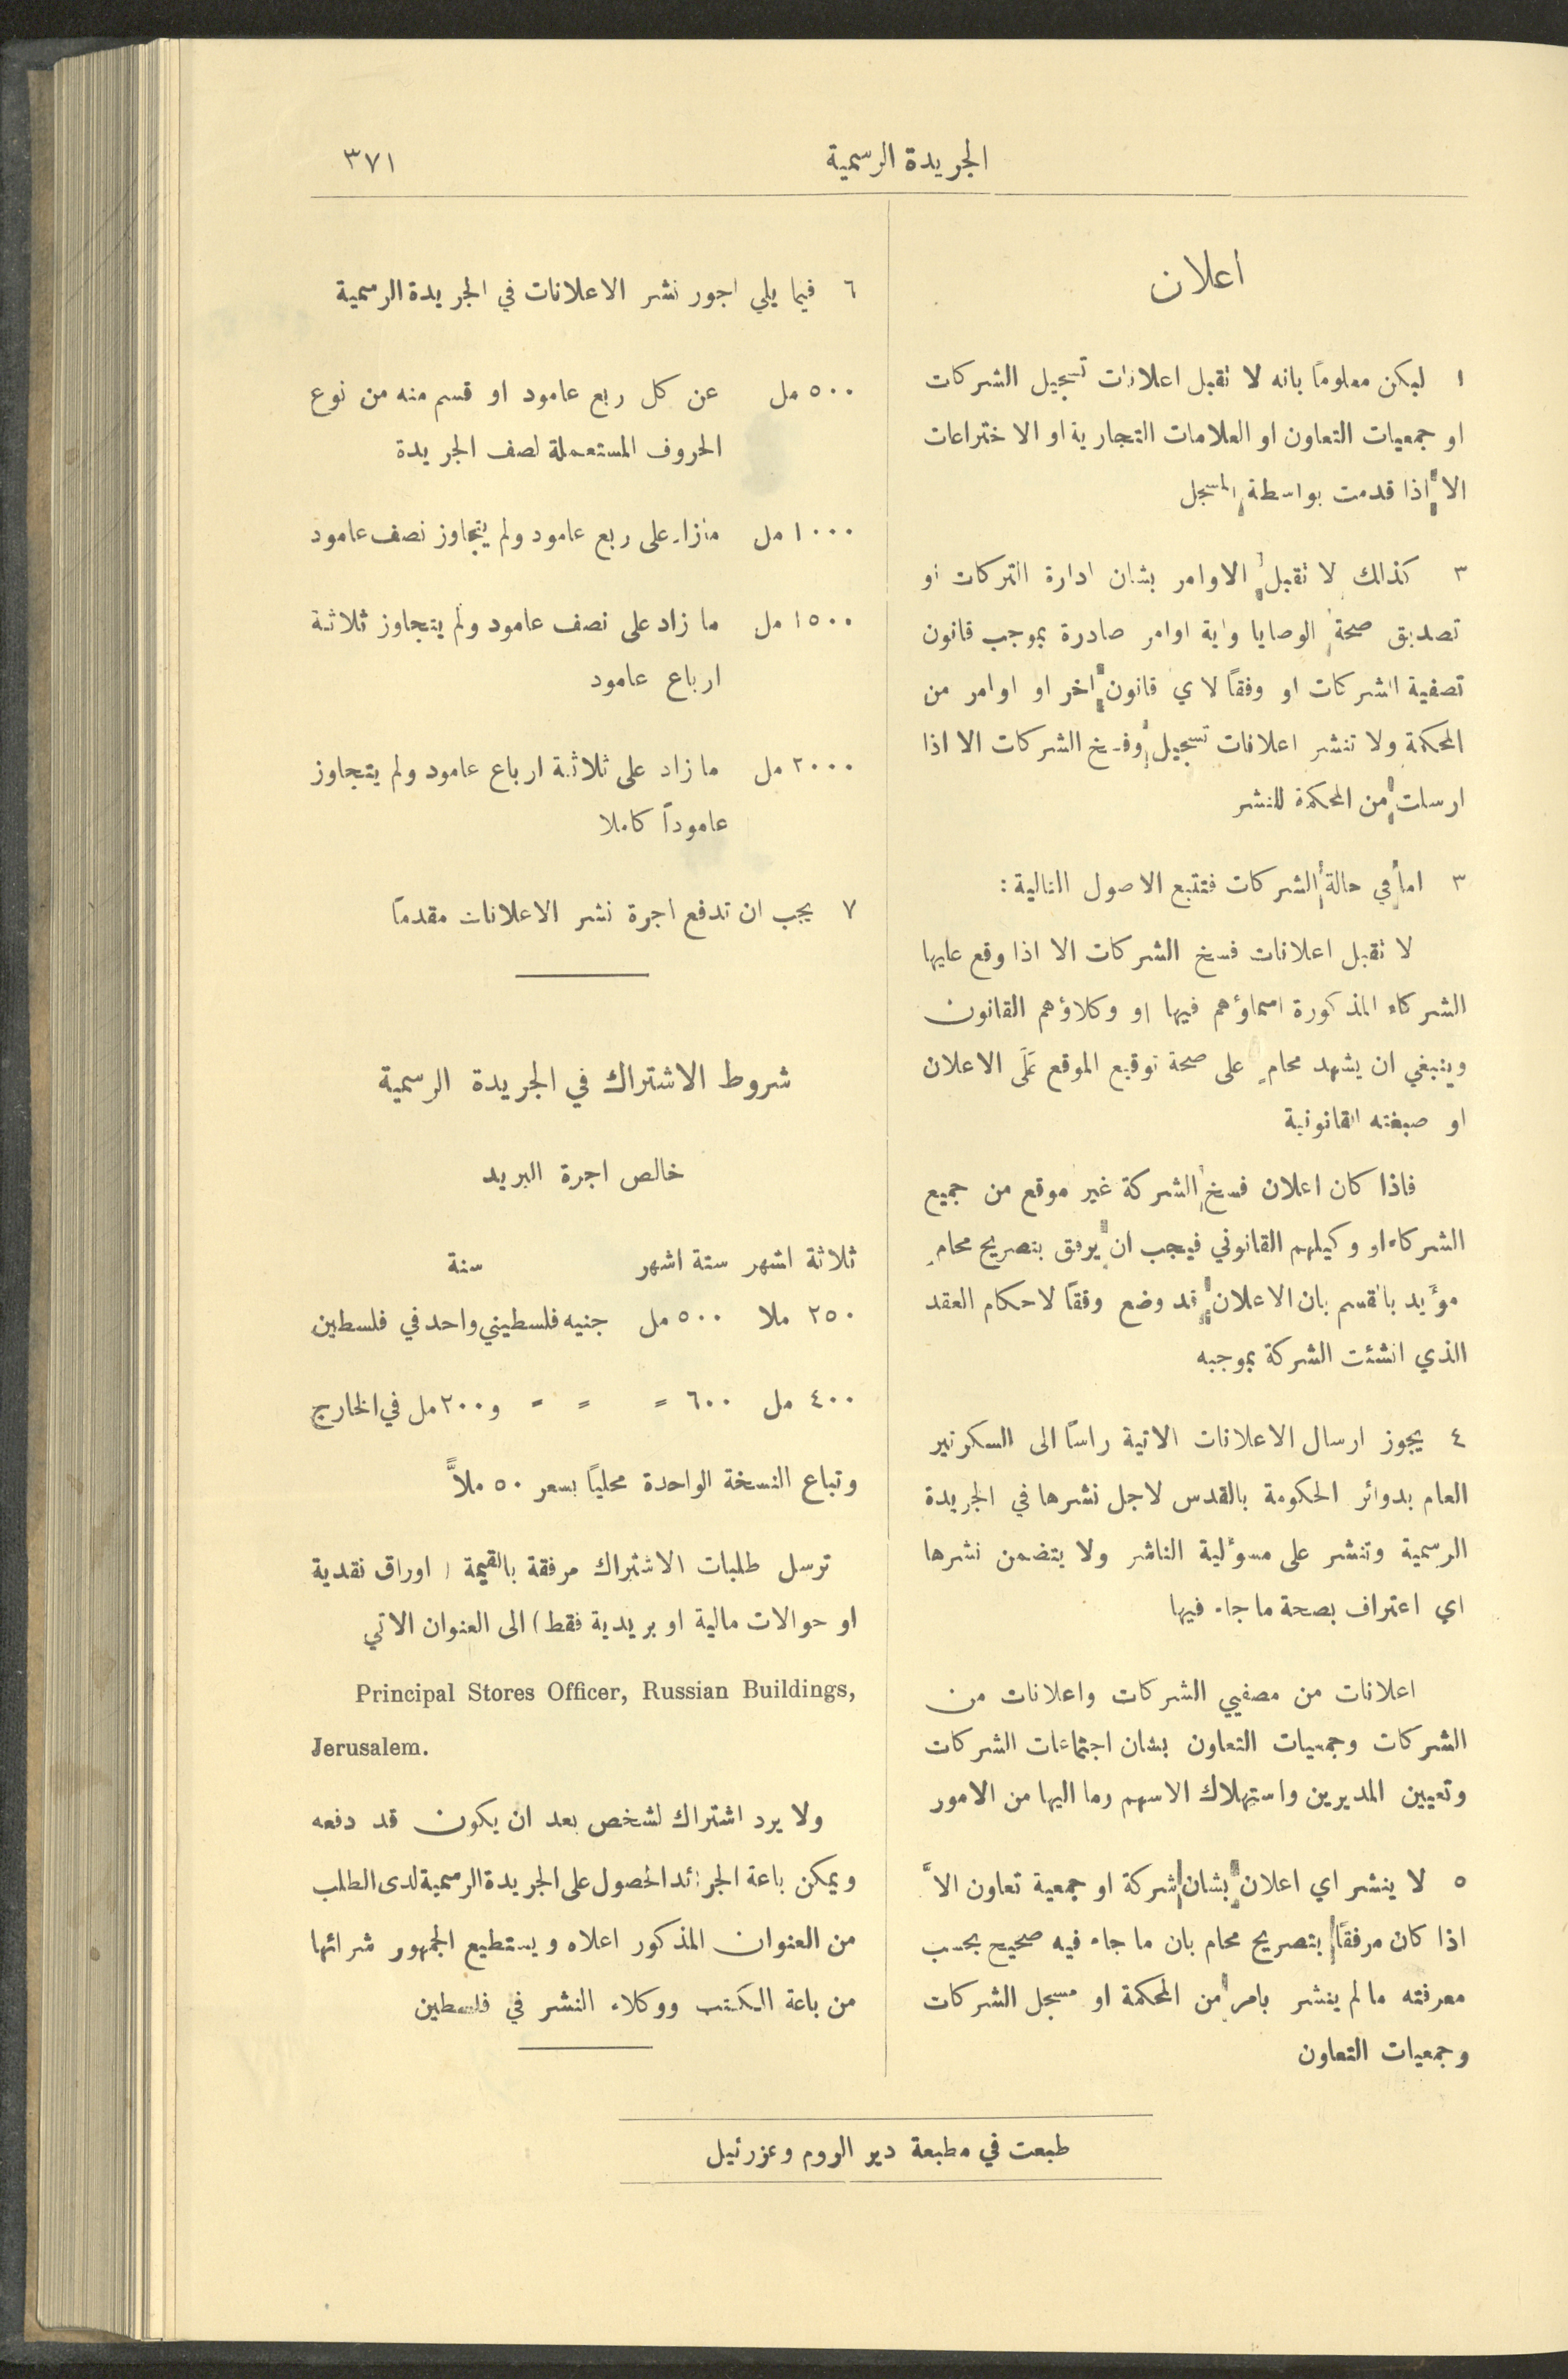 الجريدة الرسمية ٣٧١
اعلان
١ ليكن معلوماً بانه لا تقبل اعلانات تسجيل الشركات
او جمعيات التعاون او العلامات التجارية او الاختراعات
الا اذا قدمت بواسطة المسجل
٣ كذالك لا تقبل الاوامر بشان ادارة التركات او
تصديق صحة الوصايا واية اوامر صادرة بموجب قانون
تصفية الشركات او وفقاً لاي قانون اخر او اوامر من
المحكمة ولا تنشر اعلانات تسجيل وفسخ الشركات الا اذا
ارسلت من المحكمة للنشر
٣ اما في حالة الشركات فتتبع الاصول التالية :
لا تقبل اعلانات فسخ الشركات الا اذا وقع عليها
الشركاء المذكورة اسماؤهم فيها او وكلاؤهم القانون
وينبغي ان يشهد محامٍ على صحة توقيع الموقع عَلَى الاعلان
او صبغته القانونية
فاذا كان اعلان فسخ الشركة غير موقع من جميع
الشركاء او وكيلهم القانوني فيجب ان يرفق بتصريح محامٍ
مؤَيد بالقسم بان الاعلان قد وضع وفقاً لاحكام العقد
الذي انشئت الشركة بموجبه
٤ يجوز ارسال الاعلانات الاتية راساً الى السكرتير
العام بدوائر الحكومة بالقدس لاجل نشرها في الجريدة
الرسمية وتنشر على مسؤلية الناشر ولا يتضمن نشرها
اي اعتراف بصحة ما جاء فيها
اعلانات من مصفيي الشركات واعلانات من
الشركات وجمعيات التعاون بشان اجتماعات الشركات
وتعيين المديرين واستهلاك الاسهم وما اليها من الامور
٥ لا ينشر اي اعلان بشان شركة او جمعية تعاون الاَّ
اذا كان مرفقاً بتصريح محام بان ما جاء فيه صحيح بحسب
معرفته ما لم ينشر بامر من المحكمة او مسجل الشركات
وجمعيات التعاون
٦ فيما يلي اجور نشر الاعلانات في الجريدة الرسمية
٥٠٠ مل عن كل ربع عامود او قسم منه من نوع
الحروف المستعملة لصف الجريدة
١٠٠٠ مل ما زاد على ربع عامود ولم يتجاوز نصف عامود
١٥٠٠ مل ما زاد على نصف عامود ولم يتجاوز ثلاثة
ارباع عامود
٢٠٠٠ مل ما زاد على ثلاثة ارباع عامود ولم يتجاوز
عاموداً كاملا
٧ يجب ان تدفع اجرة نشر الاعلانات مقدماً
شروط الاشتراك في الجريدة الرسمية
خالص اجرة البريد
ثلاثة اشهر ستة اشهر سنة
٢٥٠ ملا ٥٠٠ مل جنيه فلسطيني واحد في فلسطين
٤٠٠ مل ٦٠٠ = = = و٢٠٠ مل في الخارج
وتباع النسخة الواحدة محلياً بسعر ٥٠ ملاًّ
ترسل طلبات الاشتراك مرفقة بالقيمة ( اوراق نقدية
او حوالات مالية او بريدية فقط) الى العنوان الاتي
Principal Stores Officer, Russian Buildings,
Jerusalem.
ولا يرد اشتراك لشخص بعد ان يكون قد دفعه
ويمكن باعة الجرائد الحصول على الجريدة الرسمية لدى الطلب
من العنوان المذكور اعلاه ويستطيع الجمهور شرائها
من باعة الكتب ووكلاء النشر في فلسطين
طبعت في مطبعة دير الروم وعزرئيل